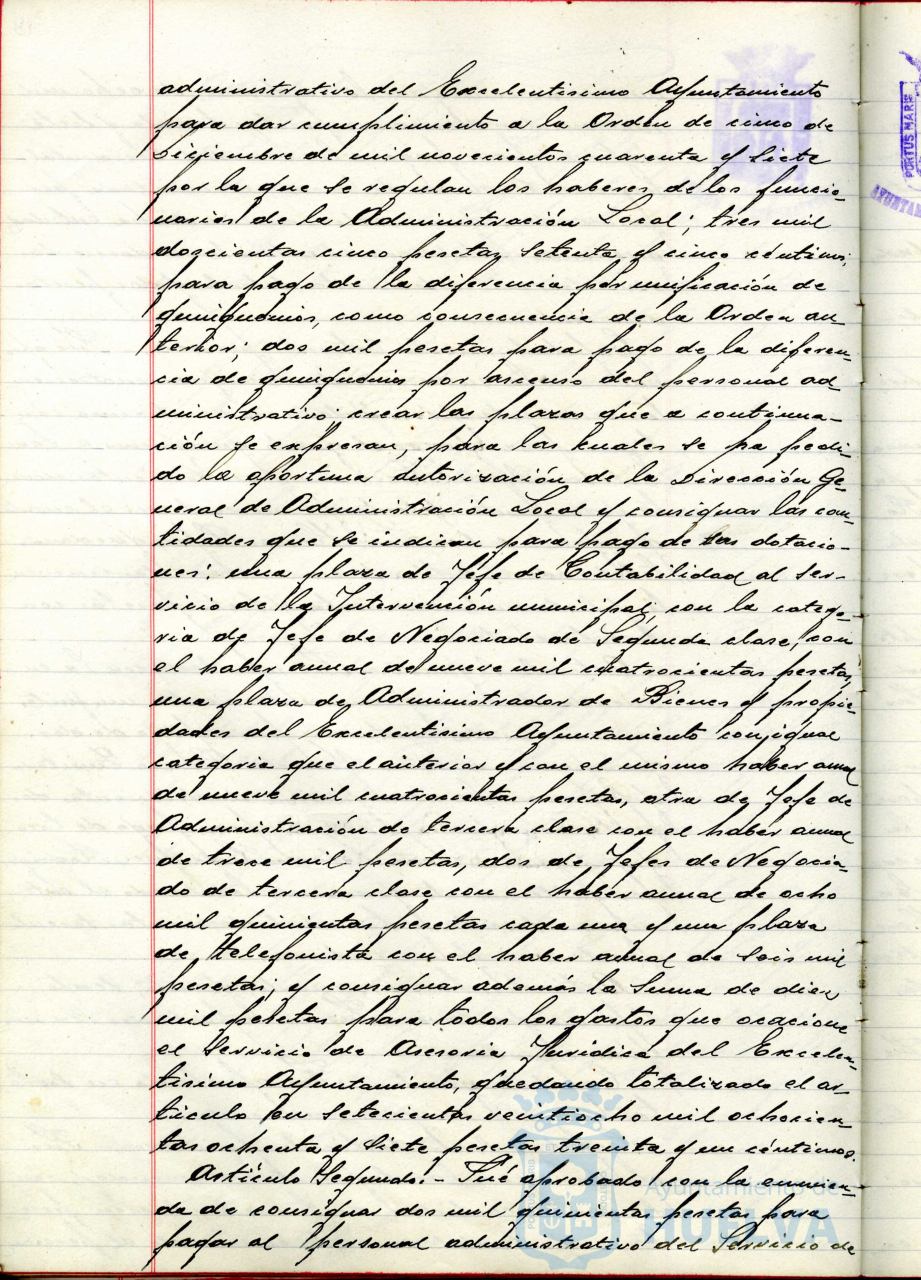 administrativo del Excelentisimo Ayuntamiento
para dar cumplimiento a la Orden de cinco de
Diciembre de mil novecientos cuarenta y siete
por la que se regulan los haberes de los funcio-
narios de la Administración Local; tres mil
doscientas cinco pesetas setenta y cinco céntimos;
para pago de la diferencia por unificación de
quinquenios, como consecuencia de la Orden an-
terior; dos mil pesetas para pago de la diferen-
cia de quinquenios por ascenso del personal ad-
ministrativo; crear las plazas que a continua-
ción se expresan, para las cuales se ha pedi-
do la oportuna autorización de la Dirección Ge-
neral de Administración Local y consignar las can-
tidades que se indican para pago de sus dotacio-
nes: una plaza de Jefe de Contabilidad al ser-
vicio de la Intervención municipal, con la catego-
ria de Jefe de Negociado de Segunda clase, con
el haber anual de nueve mil cuatrocientas pesetas,
una plaza de Administrador de Bienes y propie-
dades del Excelentisimo Ayuntamiento con igual
categoria que el anterior y con el mismo haber anual
de nueve mil cuatrocientas pesetas, otra de Jefe de
Administración de tercera clase con el haber anual
de trece mil pesetas, dos de Jefes de Negocia-
do de tercera clase con el haber anual de ocho
mil quinientas pesetas cada una y una plaza
de telefonista con el haber anual de seis mil
pesetas; y consignar además la suma de diez
mil pesetas para todos los gastos que ocacione
el servicio de Asesoria Juridica del Excelen-
tisimo Ayuntamiento, quedando totalizado el ar-
ticulo en setecientas veintiocho mil ochocien-
tas ochenta y siete pesetas treinta y un céntimos.
Artículo Segundo:- Fué aprobado con la enmien-
da de consignar dos mil quinientas pesetas para
pagar al personal administrativo del Servicio de
PORTUS MARIS
Ayuntamiento de
HUELVA